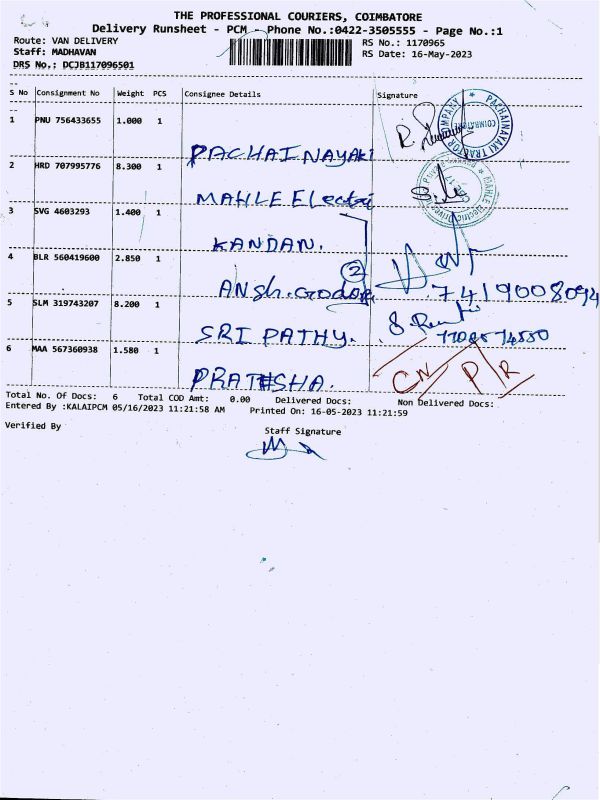 THE PROFESSIONAL COURIERS, COIMBATORE
Delivery Runsheet - PCM - Phone No.:0422-3505555 - Page No.:1
Route: VAN DELIVERY
RS No.: 1170965
Staff: MADHAVAN
RS Date: 16-May-2023
DRS No.: DCJB117096501
S No Consignment No Weight PCS Consignee Details Signature
1 PNU 756433655 1.000 1
PACHAI NAYAKI
2 HRD 707995776 8.300 1
MAHLE Electri
3 SVG 4603293 1.400 1
KANDAN.
4 BLR 560419600 2.850 1
2
Ansh. Godape 7419008094
5 SLM 319743207 8.200 1
SRI PATHY.
6 MAA 567360938 1.580 1
PRATESHA. CN/P/R
Total No. Of Docs: 6 Total COD Amt: 0.00 Delivered Docs: Non Delivered Docs:
Entered By :KALAIPCM 05/16/2023 11:21:58 AM Printed On: 16-05-2023 11:21:59
Verified By
Staff Signature